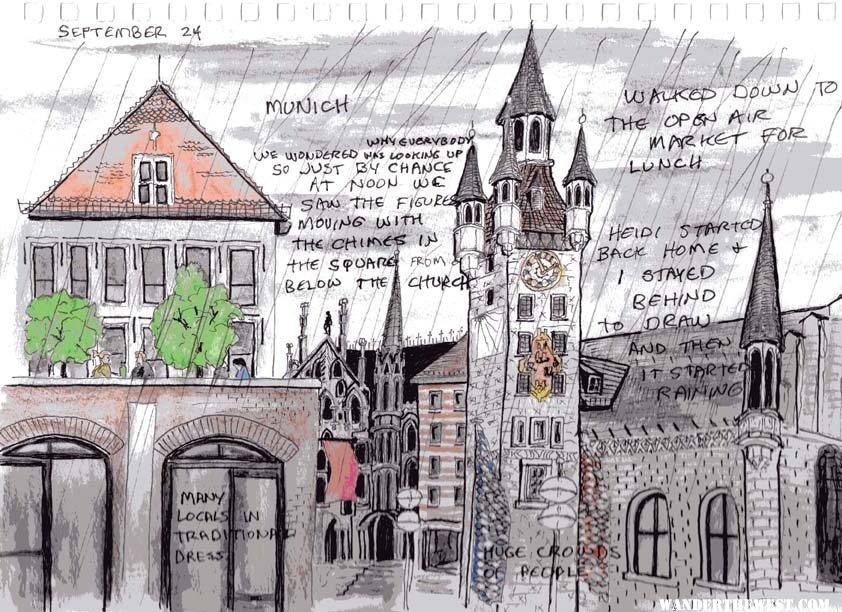 SEPTEMBER 24
MUNICH
WHY EVERYBODY
WE WONDERED WAS LOOKING UP
SO JUST BY CHANCE
AT NOON WE
SAW THE FIGURES
MOVING WITH
THE CHIMES IN
THE SQUARE FROM
BELOW THE CHURCH
WALKED DOWN TO
THE OPEN AIR
MARKET FOR
LUNCH
HEIDI STARTED
BACK HOME &
I STAYED
BEHIND
TO DRAW
AND THEN
IT STARTED
RAINING
MANY
LOCALS IN
TRADITIONAL
DRESS
HUGE CROWDS
OF PEOPLE
WANDERTHEWEST.COM